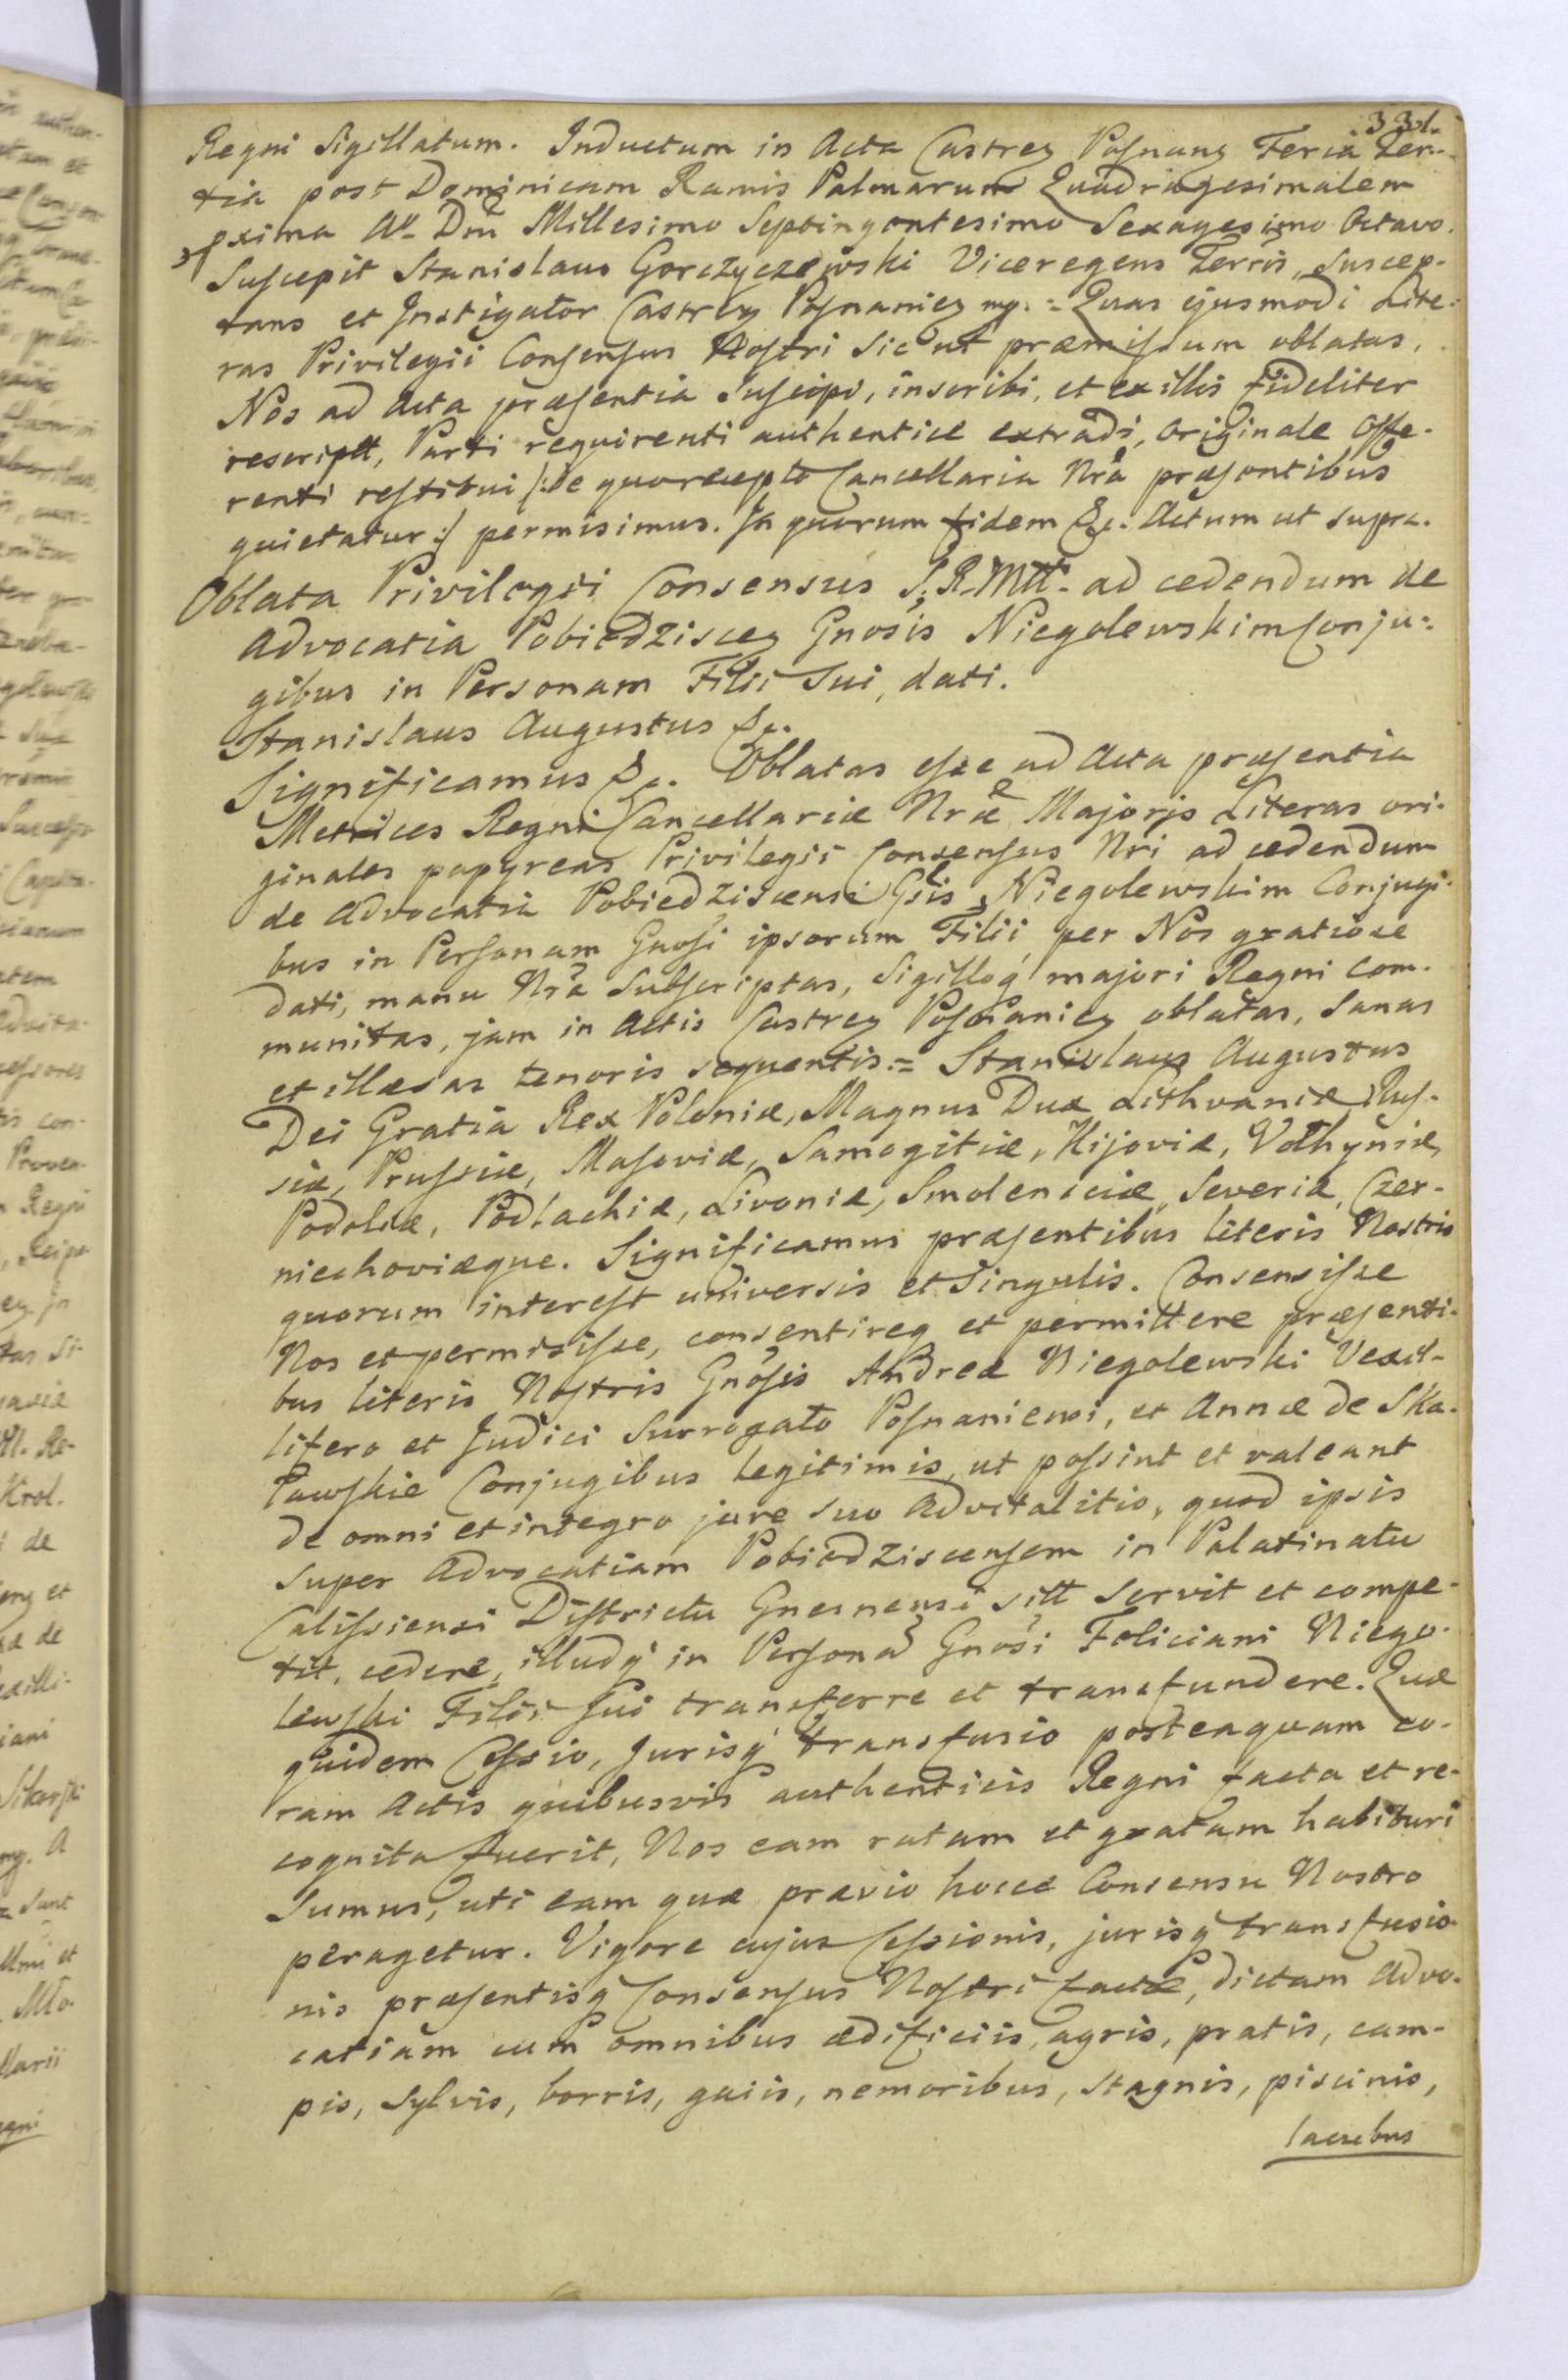 331.
Regni Sigillatum. Inductum in Acta Castreȝ Posnanȝ Feria Ter-
tia post Dominicam Ramis Palmarum Quadragesimalem
pxima Aº Dnĩ Millesimo Septingentesimo Sexagesimo Octavo.
Suscepit Stanislaus Gorczyczewski Viceregens Terris, Suscep-
tans et Instigator Castreȝ Posnanieȝ mp. = Quas ejusmodi Lite-
ras Privilegii Consensus Nostri Sic ut præmissum oblatas,
Nos ad Acta præsentia Suscipi, inscribi, et ex illis fideliter
rescriptt, Parti requirenti authentice extradi, Originale Offe-
renti restitui /: de quo recepto Cancellaria Nrã præsentibus
quietatur :/ permisimus. In quorum fidem &c. Actum ut supra.
Oblata Privilegii Consensus S. R. Mtt. ad cedendum de
Advocatia Pobiedzisceȝ Gnosis Niegolewskim Conju-
gibus in Personam Filii Sui, dati.
Stanislaus Augustus &c.
Significamus &c. Oblatas esse ad Acta præsentia
Metrices Regni Cancellariæ Nræ Majoris Literas ori-
ginales papyreas Privilegii Consensus Nri ad cedendum
de Advocatia Pobiedziscensi Gsis Niegolewskim Conjugi-
bus in Personam Gnosi ipsorum Filii, per Nos gratiose
dati, manu Nrã Subscriptas, Sigilloq majori Regni com-
munitas, jam in Actis Castreȝ Posnanieȝ oblatas, Sanas
et illæsas tenoris sequentis = Stanislaus Augustus
Dei Gratia Rex Poloniæ, Magnus Dux Lithvaniæ, Rus-
siæ, Prussiæ, Masoviæ, Samogitiæ, Kijoviæ, Volhyniæ,
Podoliæ, Podlachiæ, Livoniæ, Smolensciæ, Severiæ, Czer-
niechoviæque. Significamus præsentibus literis Nostris
quorum interest universis et Singulis. Consensisse
Nos et permisisse, consentireq et permittere præsenti-
bus literis Nostris Gnosis Andreæ Niegolewski Vexil-
lifero et Judici Surrogato Posnaniensi, et Annæ de Ska-
ławskie Conjugibus legitimis, ut possint et valeant
de omni et integro jure suo Advitalitio, quod ipsis
super Advocatiam Pobiedziscensem in Palatinatu
Calissiensi Districtu Gnesnensi sitt servit et compe-
tit, cedere, illudq in Persona Gnosi Feliciani Niego-
lewski Filii sui transferre et transfundere. Quæ
quidem Cessio, Jurisq transfusio posteaquam co-
ram Actis quibusvis authenticis Regni facta et re-
cognita fuerit, Nos eam ratam et gratam habituri
Sumus, uti eam quæ prævio hocce Consensu Nostro
peragetur. Vigore cujus Cessionis, jurisq transfusio-
nis præsentisq Consensus Nostri factæ, dictam Advo-
catiam cum omnibus ædificiis, agris, pratis, cam-
pis, Sylvis, borris, gaiis, nemoribus, stagnis, piscinis,
lacubus